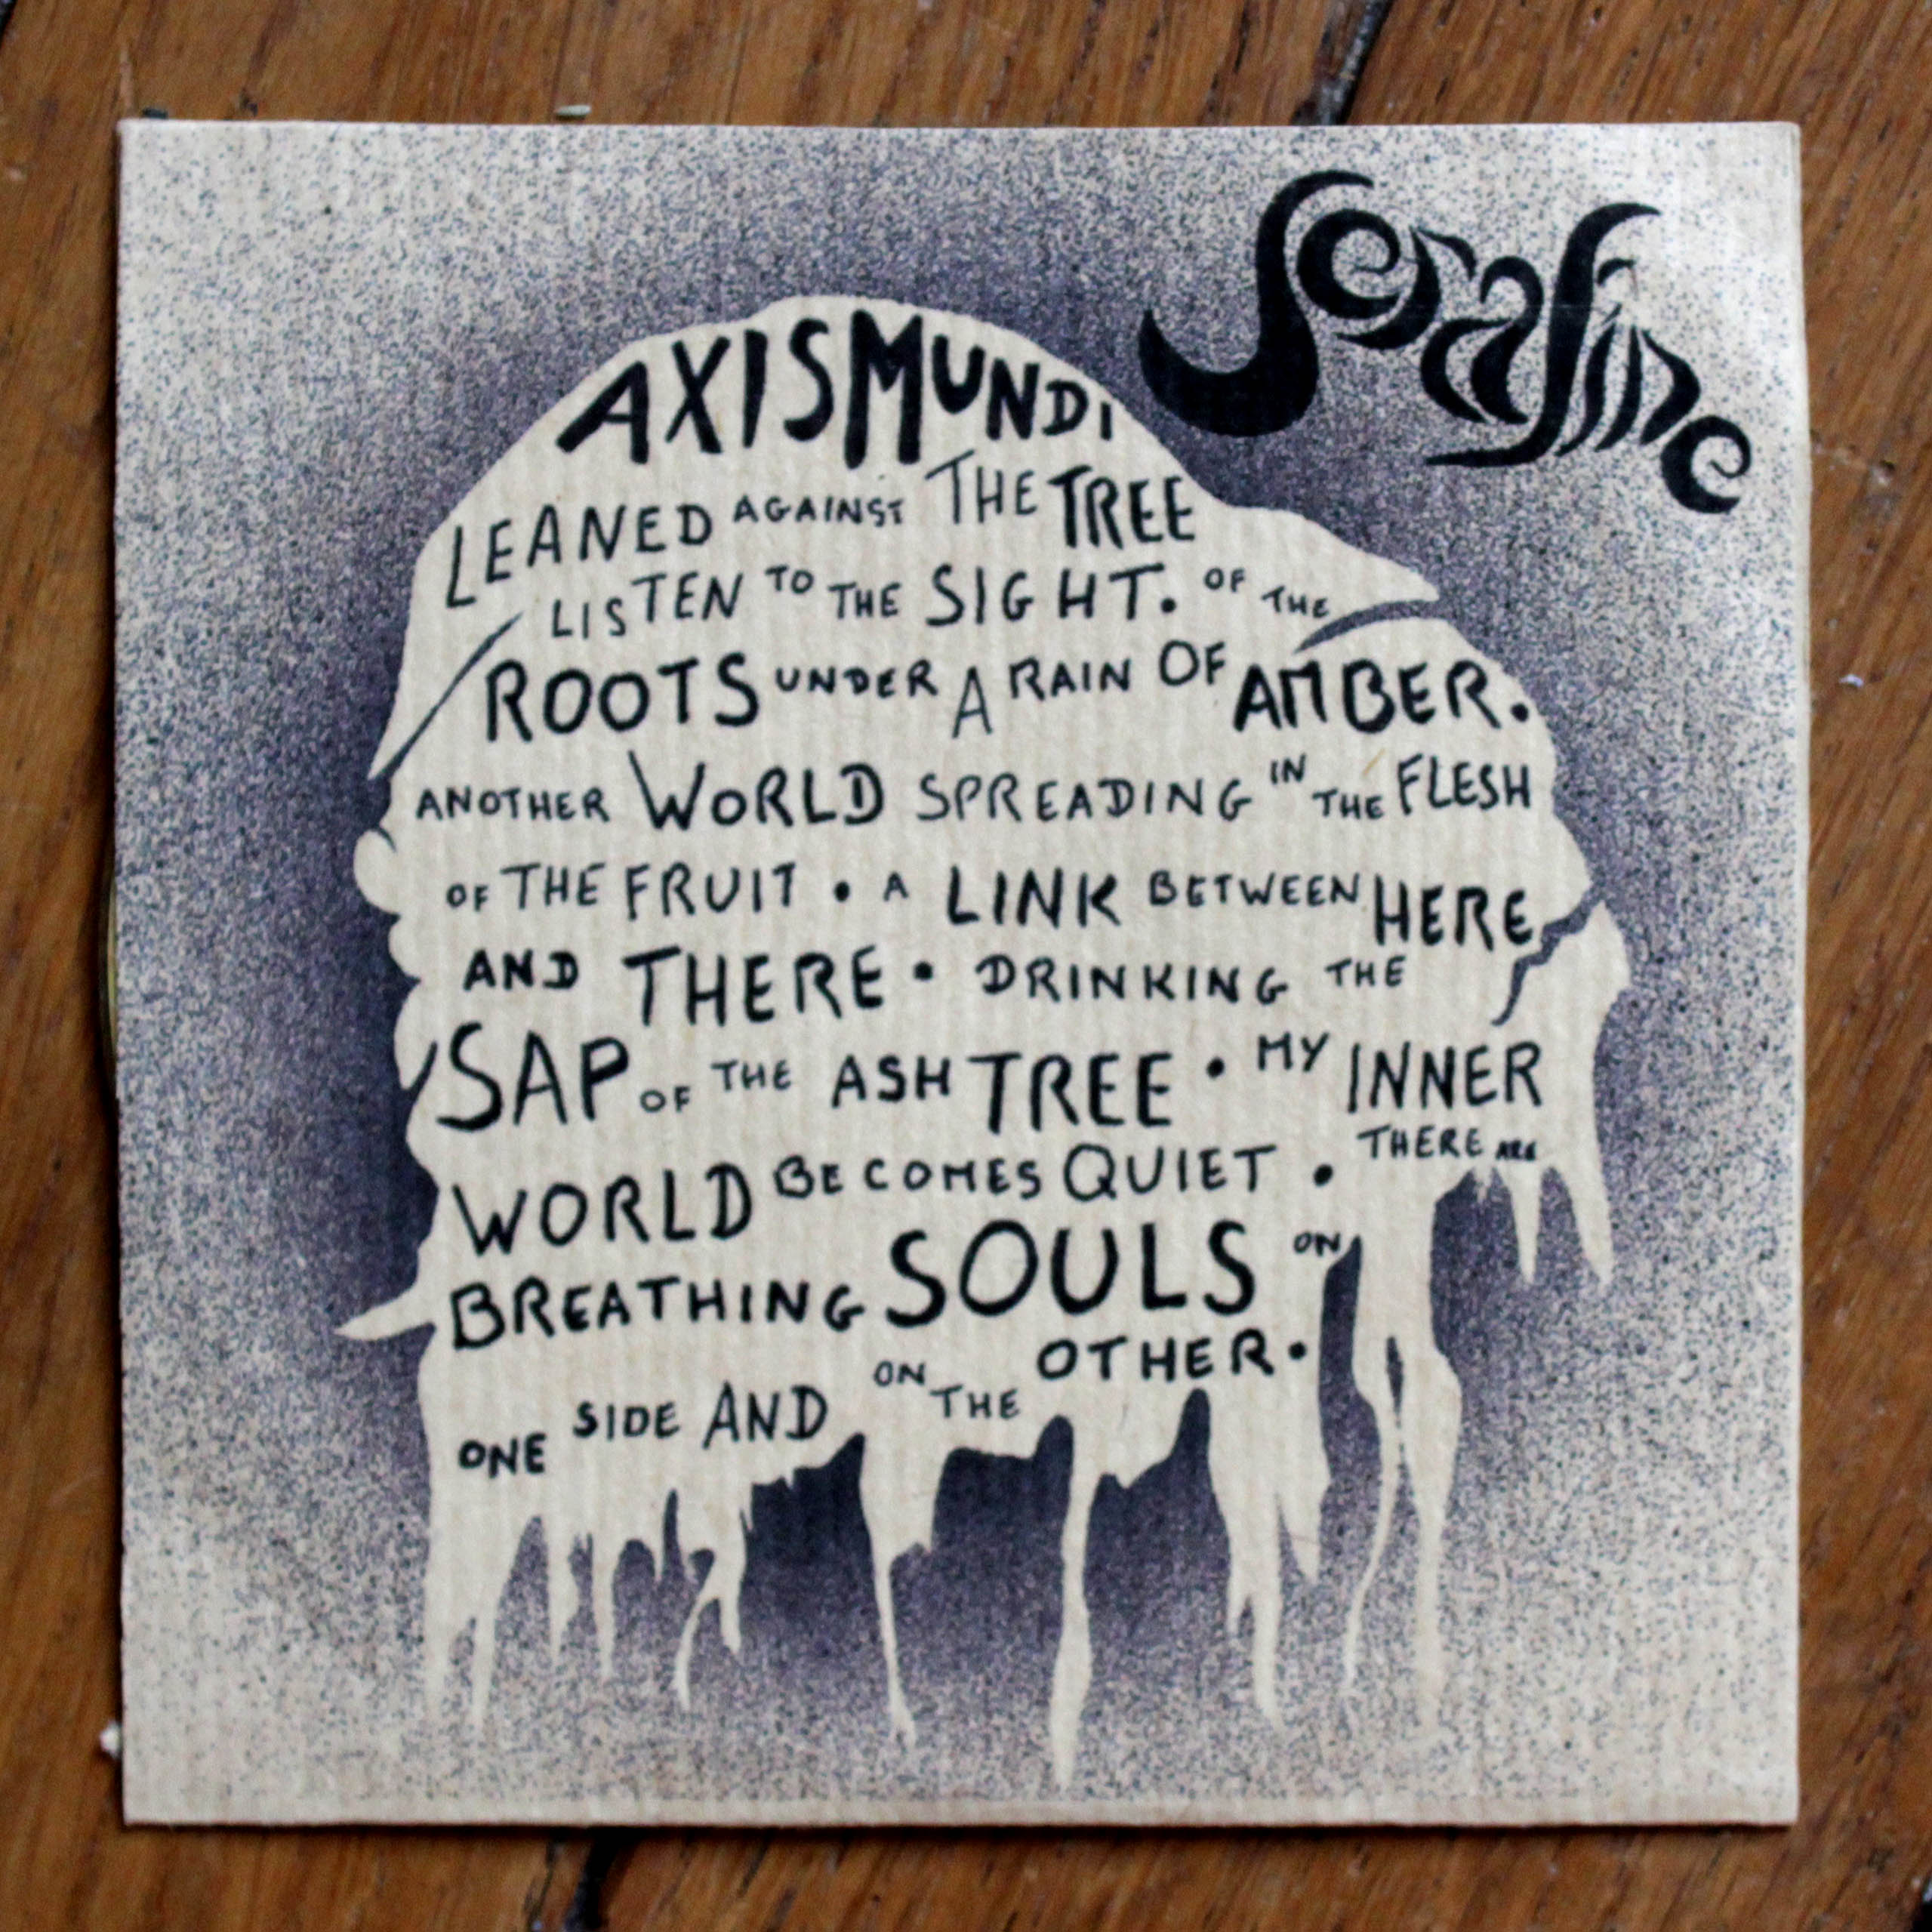 Serafine
AXIS MUNDI
LEANED AGAINST THE TREE
LISTEN TO THE SIGHT. OF THE
ROOTS UNDER A RAIN OF AMBER.
ANOTHER WORLD SPREADING IN THE FLESH
OF THE FRUIT • A LINK BETWEEN HERE
AND THERE • DRINKING THE
SAP OF THE ASH TREE • MY INNER
WORLD BECOMES QUIET • THERE ARE
BREATHING SOULS ON
ONE SIDE AND ON THE OTHER •